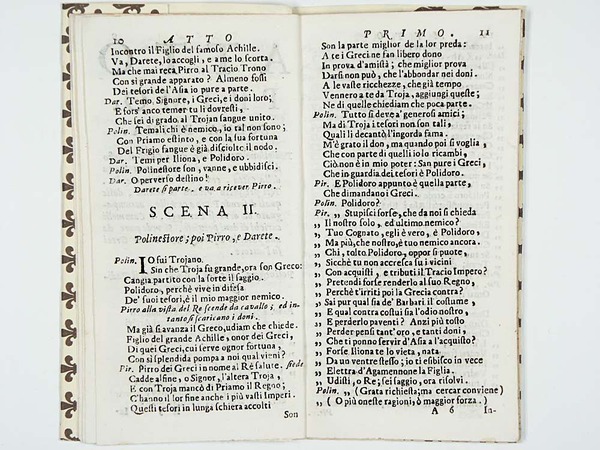 10 ATTO
Incontro il Figlio del famoso Achille.
Va, Darete, lo accogli, e a me lo scorta.
Ma che mai reca Pirro al Tracio Trono
Con sì grande apparato? Almeno fossi
Dei tesori dell'Asia io pure a parte.
Dar. Temo, Signore, i Greci, e i doni loro;
E fors'anco temer tu li dovresti,
Che sei di grado al Trojan sangue unito.
Polin. Temali chi è nemico, io tal non sono;
Con Priamo estinto, e con la sua fortuna
Del Frigio sangue è già disciolto il nodo.
Dar. Temi per Iliona, e Polidoro.
Polin. Polinestore son, vanne, e ubbidisci.
Dar. O perverso destino!
Darete si parte, e va a ricever Pirro.
SCENA II.
Polinestore; poi Pirro, e Darete.
Polin. IO fui Trojano.
Sin che Troja fu grande, ora son Greco:
Cangia partito con la sorte il saggio.
Polidoro, perchè vive in difesa
De' suoi tesori, è il mio maggior nemico.
Pirro alla vista del Re scende da cavallo; ed intanto
si scaricano i doni.
Ma già s'avanza il Greco, udiam che chiede.
Figlio del grande Achille, onor dei Greci,
Di quei Greci, cui serve ognor fortuna,
Con sì splendida pompa a noi qual vieni? siede
Pir. Pirro dei Greci in nome al Rè salute.
Cadde alfine, o Signor, l'altera Troja,
E con Troja mancò di Priamo il Regno;
C'hanno il lor fine anche i più vasti Imperi.
Questi tesori in lunga schiera accolti
Son
PRIMO. 11
Son la parte miglior de la lor preda:
A te i Greci ne fan libero dono
In prova d'amistà; che miglior prova
Darsi non può, che l'abbondar nei doni.
A le vaste ricchezze, che già tempo
Vennero a te da Troja, aggiungi queste;
Ne di quelle chiediam che poca parte.
Polin. Tutto si deve a' generosi amici;
Ma di Troja i tesori non son tali,
Quali li decantò l'ingorda fama.
M'è grato il don, ma quando poi si voglia,
Che con parte di quelli io lo ricambi,
Ciò non è in mio poter: San pure i Greci,
Che in guardia dei tesori è Polidoro.
Pir. E Polidoro appunto è quella parte,
Che dimandano i Greci.
Polin. Polidoro?
Pir. „ Stupisci forse, che da noi si chieda
„ Il nostro solo, ed ultimo nemico?
„ Tuo Cognato, egli è vero, è Polidoro,
„ Ma più, che nostro, è tuo nemico ancora.
„ Chi, tolto Polidoro, oppor si puote,
„ Sicchè tu non accresca su i vicini
„ Con acquisti, e tributi il Tracio Impero?
„ Pretendi forse renderlo al suo Regno,
„ Perchè t'irriti poi la Grecia contra?
„ Sai pur qual sia de' Barbari il costume,
„ E qual contra costui sia l'odio nostro,
„ E perderlo paventi? Anzi più tosto
„ Perder pensi tant'oro, e tanti doni,
„ Che ti ponno servir d'Asia a l'acquisto?
„ Forse Iliona te lo vieta, nata
„ Da un ventre stesso; io ti esibisco in vece
„ Elettra d'Agamennone la Figlia.
„ Udisti, o Re; sei saggio, ora risolvi.
Polin. „ (Grata richiesta; ma cercar conviene)
„ ( O più oneste ragioni, ò maggior forza. )
A 6 In-